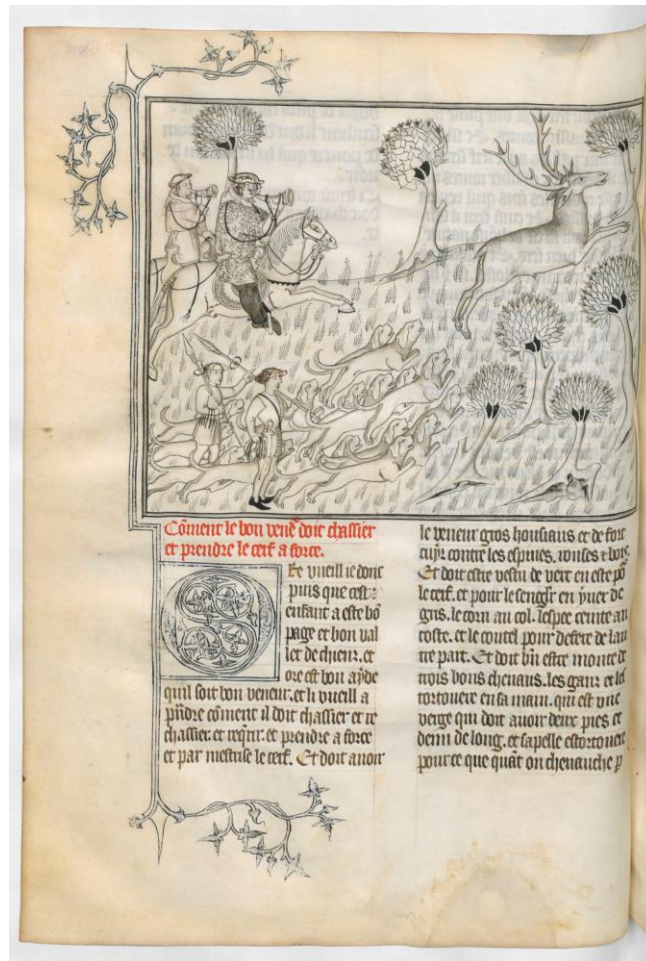 Cõment le bon vene͛ doit chassier
et prendre le cerf a force.
Re vueill ie donc
puis que cest
enfant a este bõ
page et bon val
let de chiens. et
ore est bon ayde
quil soit bon veneur. et li vueill a
pñdre cõment il doit chassier et re
chassier. et reqrir. et prendre a force
et par mestrise le cerf. Et doit avoir
le veneur gros housiaus et de fort
cuyr contre les espines. ronses et bois.
Et doit estre vestu de vert en este põ
le cerf. et pour le senglr en yuer de
gris. le corn au col. lespee ceinte au
coste. et le coutel pour defere de lau
tre part. Et doit bñ estre monte de
trois bons chevaus. les ganz et
en sa main. qui est vne
verge qui doit auoir deux pies et
demi de long. et sapelle estortouere
pour ce que quãt on cheuauche p